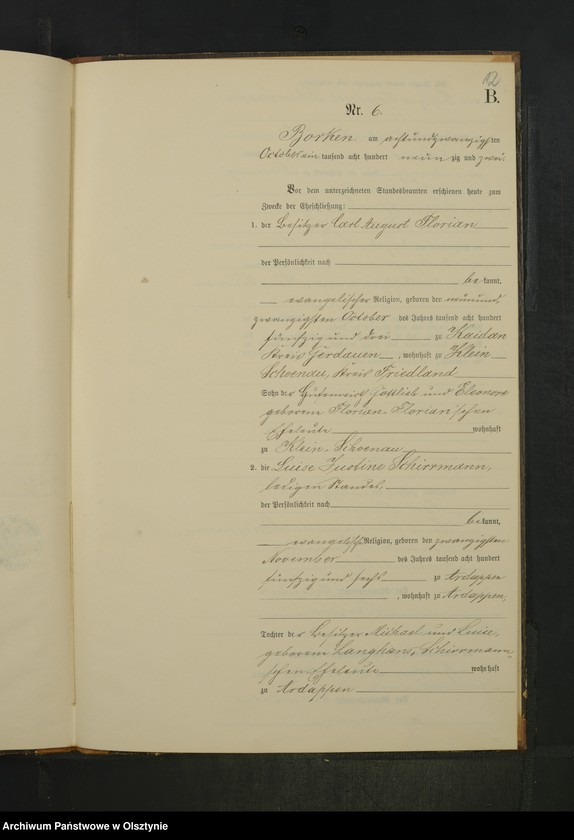 12
B.
Nr. 6.
Borken am achtundzwanzigsten
October ein tausend acht hundert neun zig und zwei.
Vor dem unterzeichneten Standesbeamten erschienen heute zum
Zwecke der Eheschließung:
1. der Besitzer Carl August Florian
der Persönlichkeit nach
be kannt,
evangelischer Religion, geboren den neunund
zwanzigsten October des Jahres tausend acht hundert
fünfzig und drei zu Kaidan
Kreis Gerdauen, wohnhaft zu Klein
Schoenau, Kreis Friedland
Sohn des Gottlieb und Eleonore
geborene Florian-Florian'schen
Eheleute wohnhaft
zu Klein-Schoenau
2. die Luise Justine Schirrmann,
ledigen Standes,
der Persönlichkeit nach
be kannt,
evangelische Religion, geboren den zwanzigsten
November des Jahres tausend acht hundert
fünfzig und sechs zu Ardappen
, wohnhaft zu Ardappen,
Tochter der Besitzer Michael und Luise,
geborene Langhans, Schirrmann-
schen Eheleute wohnhaft
zu Ardappen
Archiwum Państwowe w Olsztynie